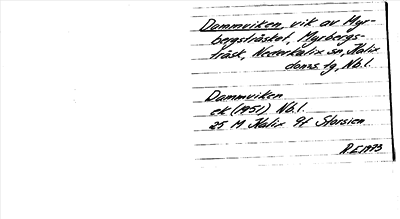 Dammviken, vik av Myr-
bergsträsket, Myrbergs-
träsk, Nederkalix sn, Kalix
doms. tg, Nb. l.
Dammviken
ek (1951), Nb. l.
25 M Kalix 9f Storsien
R.E. 1973